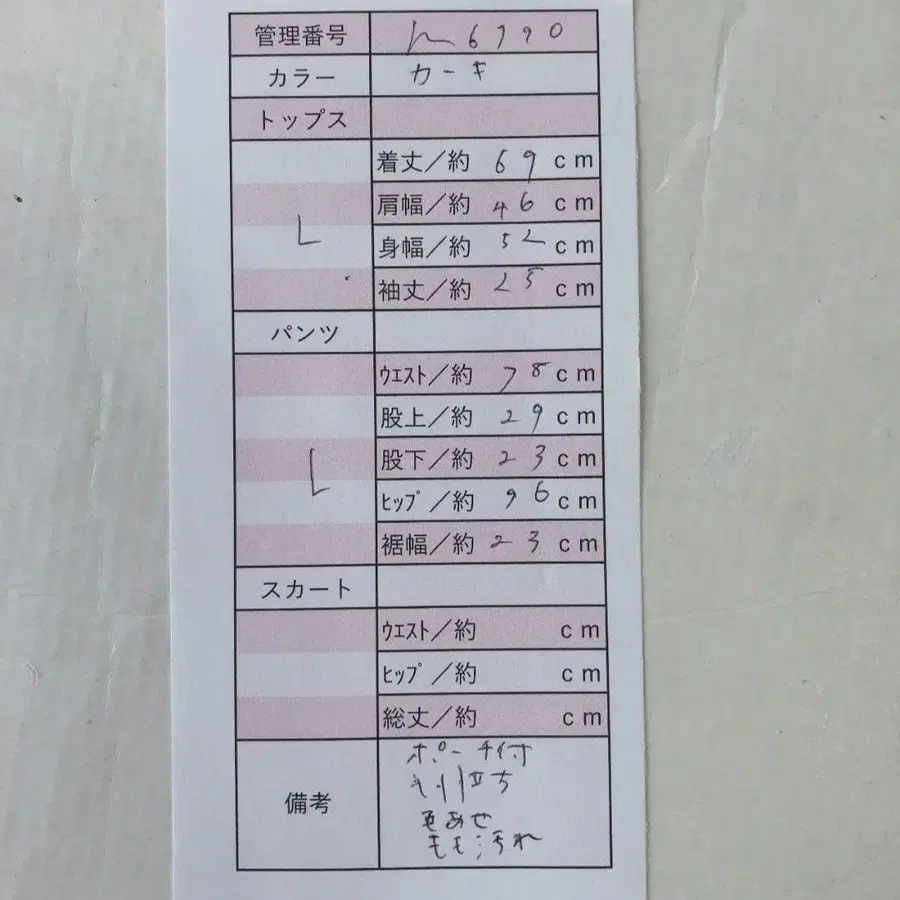 管理番号 h6790
カラー カーキ
トップス
L
着丈／約 69 cm
肩幅／約 46 cm
身幅／約 52 cm
袖丈／約 25 cm
パンツ
L
ｳｴｽﾄ／約 78 cm
股上／約 29 cm
股下／約 23 cm
ﾋｯﾌﾟ／約 96 cm
裾幅／約 23 cm
スカート
ｳｴｽﾄ／約 cm
ﾋｯﾌﾟ／約 cm
総丈／約 cm
備考
ポーチ付
毛羽立ち
色あせ
もも汚れ